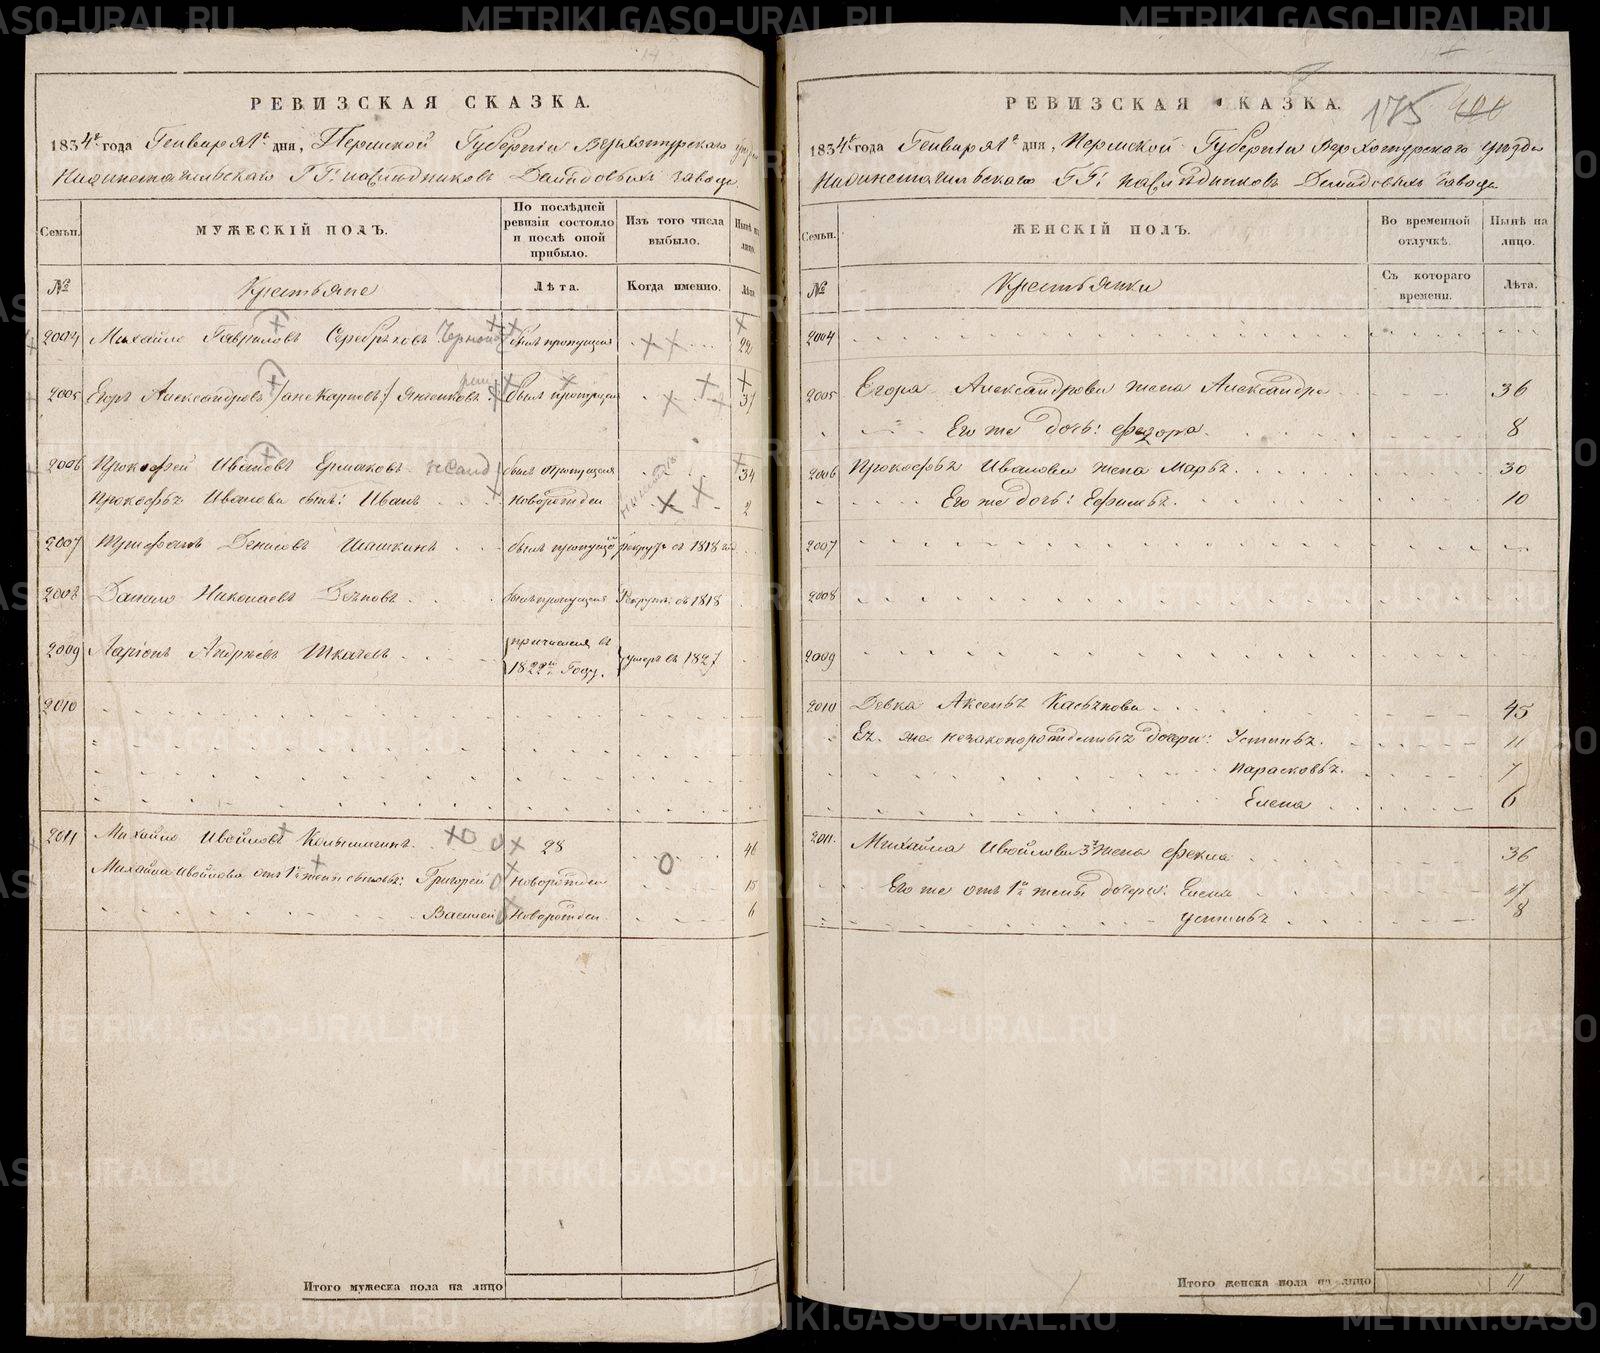 РЕВИЗСКАЯ СКАЗКА.
1834 года Генваря 1 дня, Пермской Губерніи Верхотурскаго уѣзда
Нижнетагильскаго ГГ: наслѣдниковъ Демидовыхъ завода
Семьи.
МУЖЕСКІЙ ПОЛЪ.
По послѣдней ревизіи состояло и послѣ оной прибыло.
Изъ того числа выбыло.
Нынѣ на лицо.
№
Крестьяне
Лѣта.
Когда именно.
Лѣта.
2004 Михайло Гавриловъ Серебряковъ былъ пропущенъ 22
2005 Егоръ Александровъ /: а не Карповъ :/ былъ пропущенъ 31
2006 Прокофей Ивановъ Ермаковъ былъ пропущенъ 34
Прокофья Иванова сынъ: Иванъ новорожден 2
2007 Денисовъ Шашкинъ былъ пропущен рекрут съ 1818
2008 Данило Николаевъ былъ пропущенъ рекрут: съ 1818
2009 Ларіонъ Андрѣевъ Ткачевъ причисленъ въ 1822м Году. умеръ въ 1827
2010
2011 Михайло Ивойловъ 28 46
Михайла Ивойлова отъ 1й жены сыновья: Григорей новорожден 15
Василей новорожден 6
Итого мужеска пола на лицо
РЕВИЗСКАЯ СКАЗКА.
175
1834 года Генваря 1 дня, Пермской Губерніи Верхотурскаго уѣзда
Нижнетагильскаго ГГ: наслѣдниковъ Демидовыхъ завода
Семьи.
ЖЕНСКІЙ ПОЛЪ.
Во временной отлучкѣ.
Нынѣ на лицо.
№
Крестьянки
Съ котораго времени.
Лѣта.
2004
2005 Егора Александрова жена Александра 36
Его же дочь: Федора 8
2006 Прокофья Иванова жена Марья 30
Его же дочь: Ефимья 10
2007
2008
2009
2010 Девка Аксинья Касьянова 45
Ея же незаконорожденныя дочери: Устинья 11
Парасковья 7
Елена 6
2011. Михайла Ивойлова 3я жена Фекла 36
Его же отъ 1й жены дочери: Елена
Устинья 8
Итого женска пола на лицо 11
METRIKI.GASO-URAL.RU